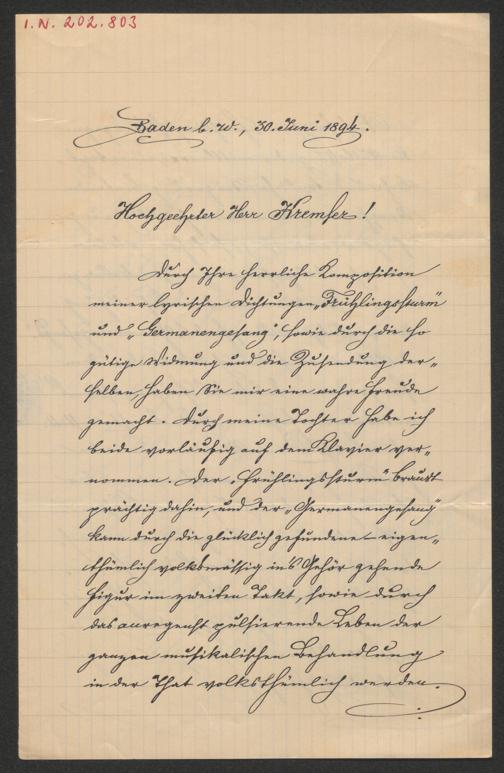 I.N. 202.803
Baden b. W., 30. Juni 1894.
Hochgeehrter Herr Kremser!
Durch Ihre herrliche Komposition
meiner lyrischen Dichtungen „Frühlingssturm"
und „Germanengesang", sowie durch die so
gütige Widmung und die Zusendung der„
selben, haben Sie mir eine wahre Freude
gemacht. Durch meine Tochter habe ich
beide vorläufig auf dem Klavier ver„
nommen. Der „Frühlingssturm" braust
prächtig dahin, und der „Germanengesang"
kann durch die glücklich gefundene eigen„
thümlich volksmässig ins Gehör gehende
Figur im zweiten Takt, sowie durch
das anregend pulsierende Leben der
ganzen musikalischen Behandlung
in der That volksthümlich werden.